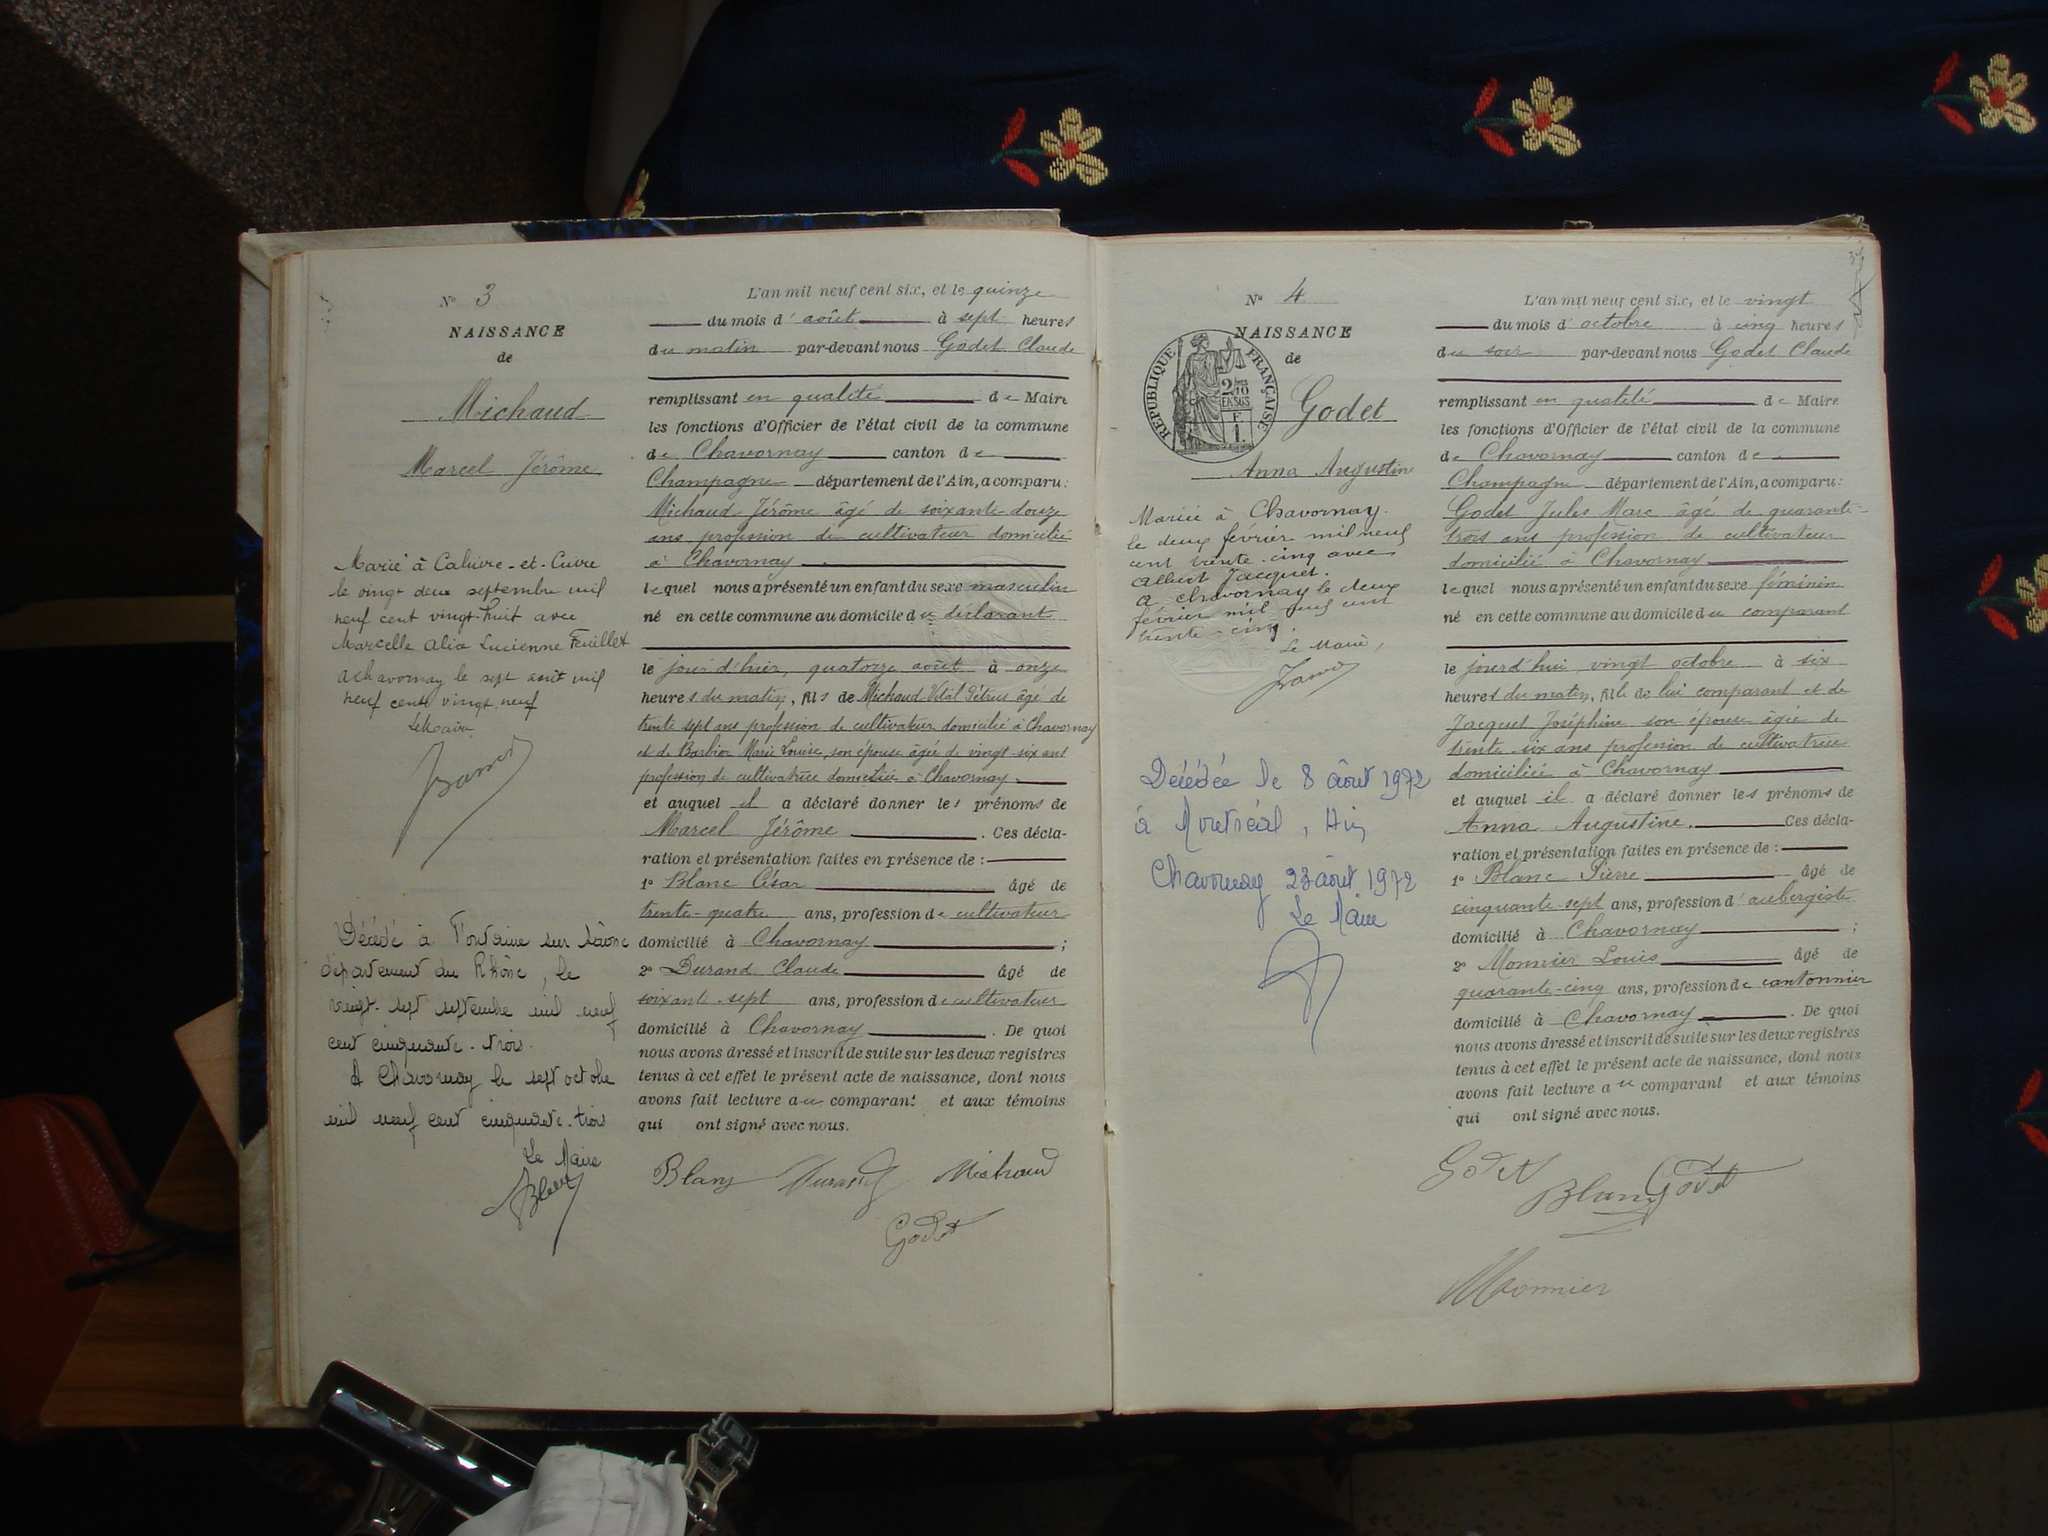 N° 3
NAISSANCE
de
Michaud
Marcel Jérôme
Marié à Caluire-et-Cuire
le vingt deux septembre mil
neuf cent vingt-huit avec
Marcelle Alia Lucienne Feuillet
A Chavornay le sept août mil
neuf cent vingt neuf
Le Maire
Décédé à Fontaine sur Saône
département du Rhône, le
vingt-sept septembre mil neuf
cent cinquante-trois.
A Chavornay le sept octobre
mil neuf cent cinquante-trois
Le Maire
L'an mil neuf cent six, et le quinze
du mois d'août à sept heures
du matin par-devant nous Godet Claude
remplissant en qualité de Maire
les fonctions d'Officier de l'état civil de la commune
de Chavornay canton de
Champagne département de l'Ain, a comparu:
Michaud Jérôme âgé de soixante-douze
ans profession de cultivateur domicilié
à Chavornay
lequel nous a présenté un enfant du sexe masculin
né en cette commune au domicile du déclarant
le jour d'hier, quatorze août à onze
heures du matin, fils de Michaud Vital Pétrus âgé de
trente sept ans profession de cultivateur domicilié à Chavornay
et de Barbier Marie Louise, son épouse âgée de vingt-six ans
profession de cultivatrice domiciliée à Chavornay
et auquel il a déclaré donner les prénoms de
Marcel Jérôme . Ces décla-
ration et présentation faites en présence de :
1° Blanc César âgé de
trente-quatre ans, profession de cultivateur
domicilié à Chavornay ;
2° Durand Claude âgé de
soixante-sept ans, profession de cultivateur
domicilié à Chavornay . De quoi
nous avons dressé et inscrit de suite sur les deux registres
tenus à cet effet le présent acte de naissance, dont nous
avons fait lecture au comparant et aux témoins
qui ont signé avec nous.
Blanc Durand Michaud
Godet
N° 4
NAISSANCE
de
RÉPUBLIQUE FRANÇAISE
2/10 EN SUS
F
1.
Godet
Anna Augustin
Mariée à Chavornay
le deux février mil neuf
cent trente-cinq avec
Albert Jacquet.
A Chavornay le deux
février mil neuf cent
trente-cinq.
Le Maire,
Décédée le 8 août 1972
à Montréal, Ain
Chavornay 23 août 1972
Le Maire
L'an mil neuf cent six, et le vingt
du mois d'octobre à cinq heures
du soir par-devant nous Godet Claude
remplissant en qualité de Maire
les fonctions d'Officier de l'état civil de la commune
de Chavornay canton de
Champagne département de l'Ain, a comparu:
Godet Jules Marc âgé de quarante-
trois ans profession de cultivateur
domicilié à Chavornay
lequel nous a présenté un enfant du sexe féminin
né en cette commune au domicile du comparant
le jourd'hui vingt octobre à six
heures du matin, fille de lui comparant et de
Jacquet Joséphine son épouse âgée de
trente-six ans profession de cultivatrice
domiciliée à Chavornay
et auquel il a déclaré donner les prénoms de
Anna Augustine. Ces décla-
ration et présentation faites en présence de :
1° Blanc Pierre âgé de
cinquante-sept ans, profession d'aubergiste
domicilié à Chavornay ;
2° Monnier Louis âgé de
quarante-cinq ans, profession de cantonnier
domicilié à Chavornay . De quoi
nous avons dressé et inscrit de suite sur les deux registres
tenus à cet effet le présent acte de naissance, dont nous
avons fait lecture au comparant et aux témoins
qui ont signé avec nous.
Godet Blanc Godet
Monnier